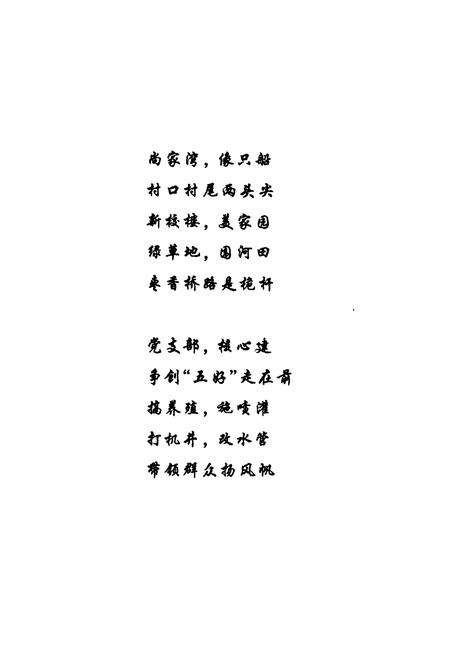 尚家湾，像只船
村口村尾两头尖
新校楼，美家园
绿草地，围河田
枣香桥路是桅杆
党支部，核心建
争创“五好”走在前
搞养殖，施喷灌
打机井，改水管
带领群众扬风帆